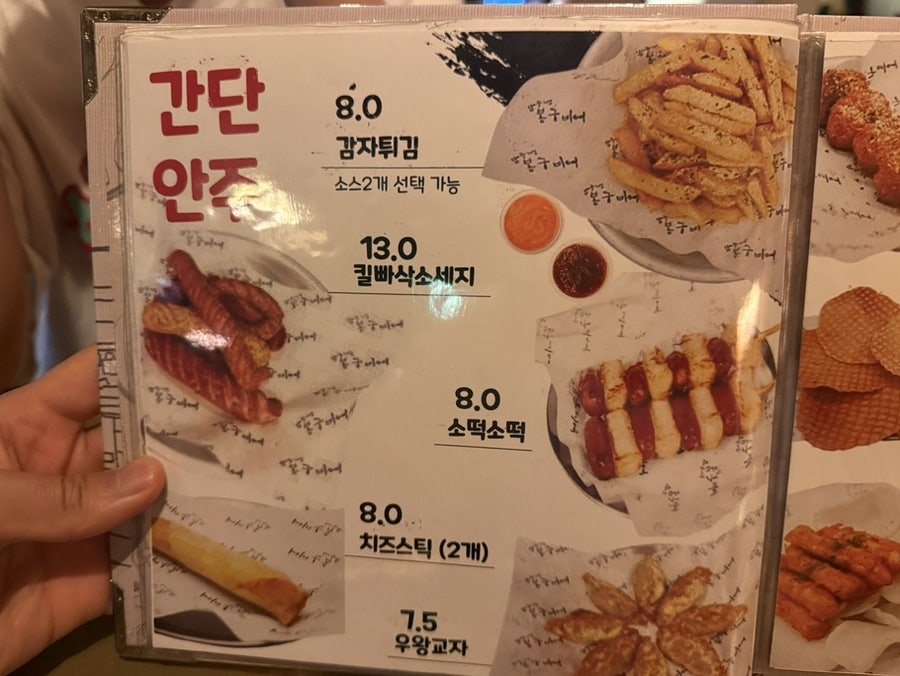 간단
안주
8.0
감자튀김
소스2개 선택 가능
13.0
킬빠삭소세지
8.0
소떡소떡
8.0
치즈스틱 (2개)
7.5
우왕교자